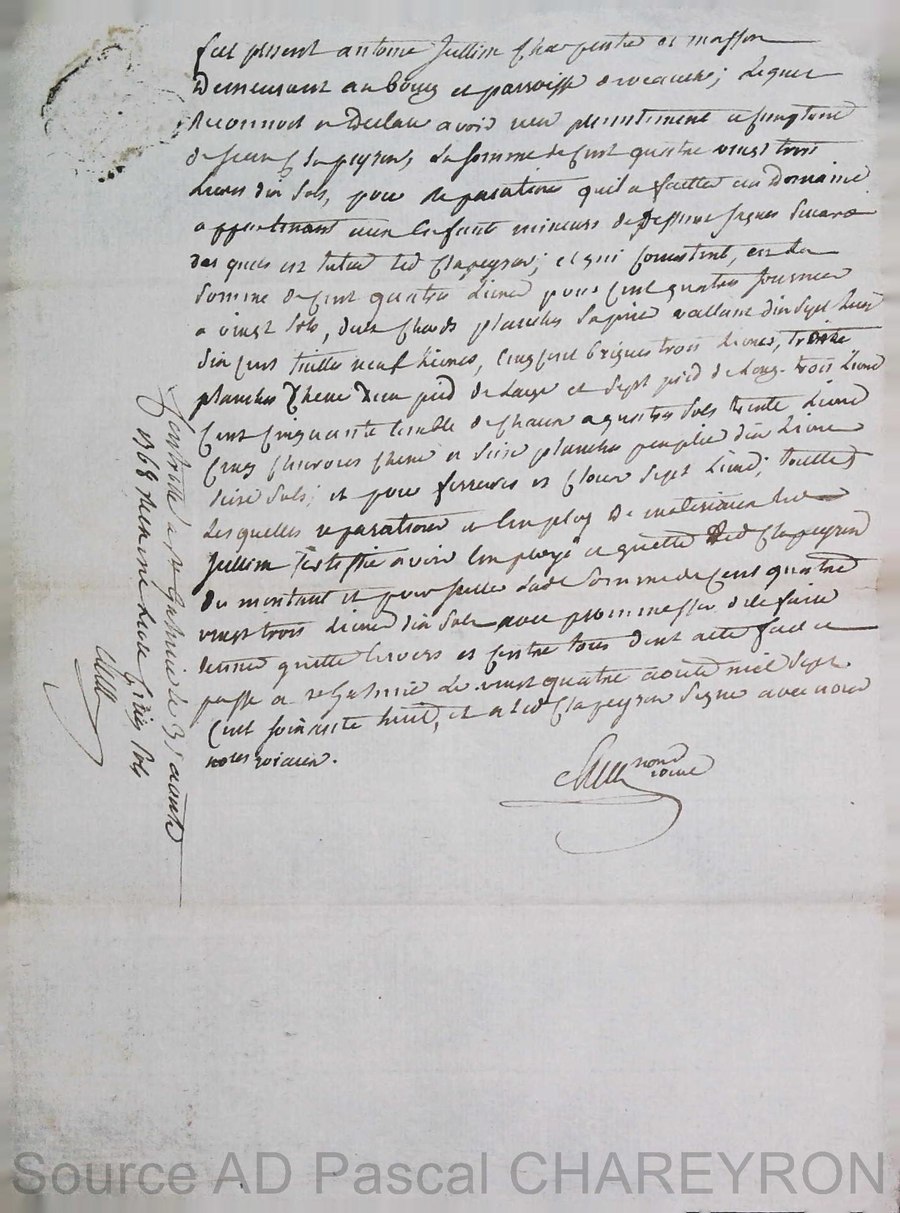 fut présent antoine Jullien Charpentie et masson
Demeurant au bourg et parroisse de ; Lequel
Reconnoit et Declare avoir reçu présentement et comptant
de Clapeyron, La somme de Cent quatre vingt trois
Livres dix sols, pour Reparations quil a faittes au Domaine
appartenant aux Enfants mineurs de Deffunt
des quels est tuteur led Clapeyron; et qui Consistent, en La
Somme de Cent quatre Livres pour Cent quatre Journées
a vingt sols, deux Chards planches Sapin vallant dix sept Livres
dix Cent tuilles neuf Livres, Cinq Cent briques trois Livres, trente
planches Chene d'un pied de Large et sept pied de Long trois Livres
Cent Cinquante de Chaux a quatre sols trente Livres
Cinq Chevrons Chene et seize planches peuplie dix Livres
seize sols; et pour ferrures et Cloux sept Livres; touttes
Lesquelles reparations et Employ de materiaux Led
Jullien Certiffie avoir Employé et quitte led Clapeyron
du montant et pour Icelle ladte Somme de Cent quatre
vingt trois Livres dix sols avec promesse de le faire
tenir quitte Envers et Contre tous dont acte fait et
passé a st Galmie Le vingt quatre aoust mil sept
Cent soixante huit, et a led Clapeyron signé avec nous
notre roiaux.
nore
roial
Controllé a st Galmie le 31 aoust
1768 Livre sols
Source AD Pascal CHAREYRON